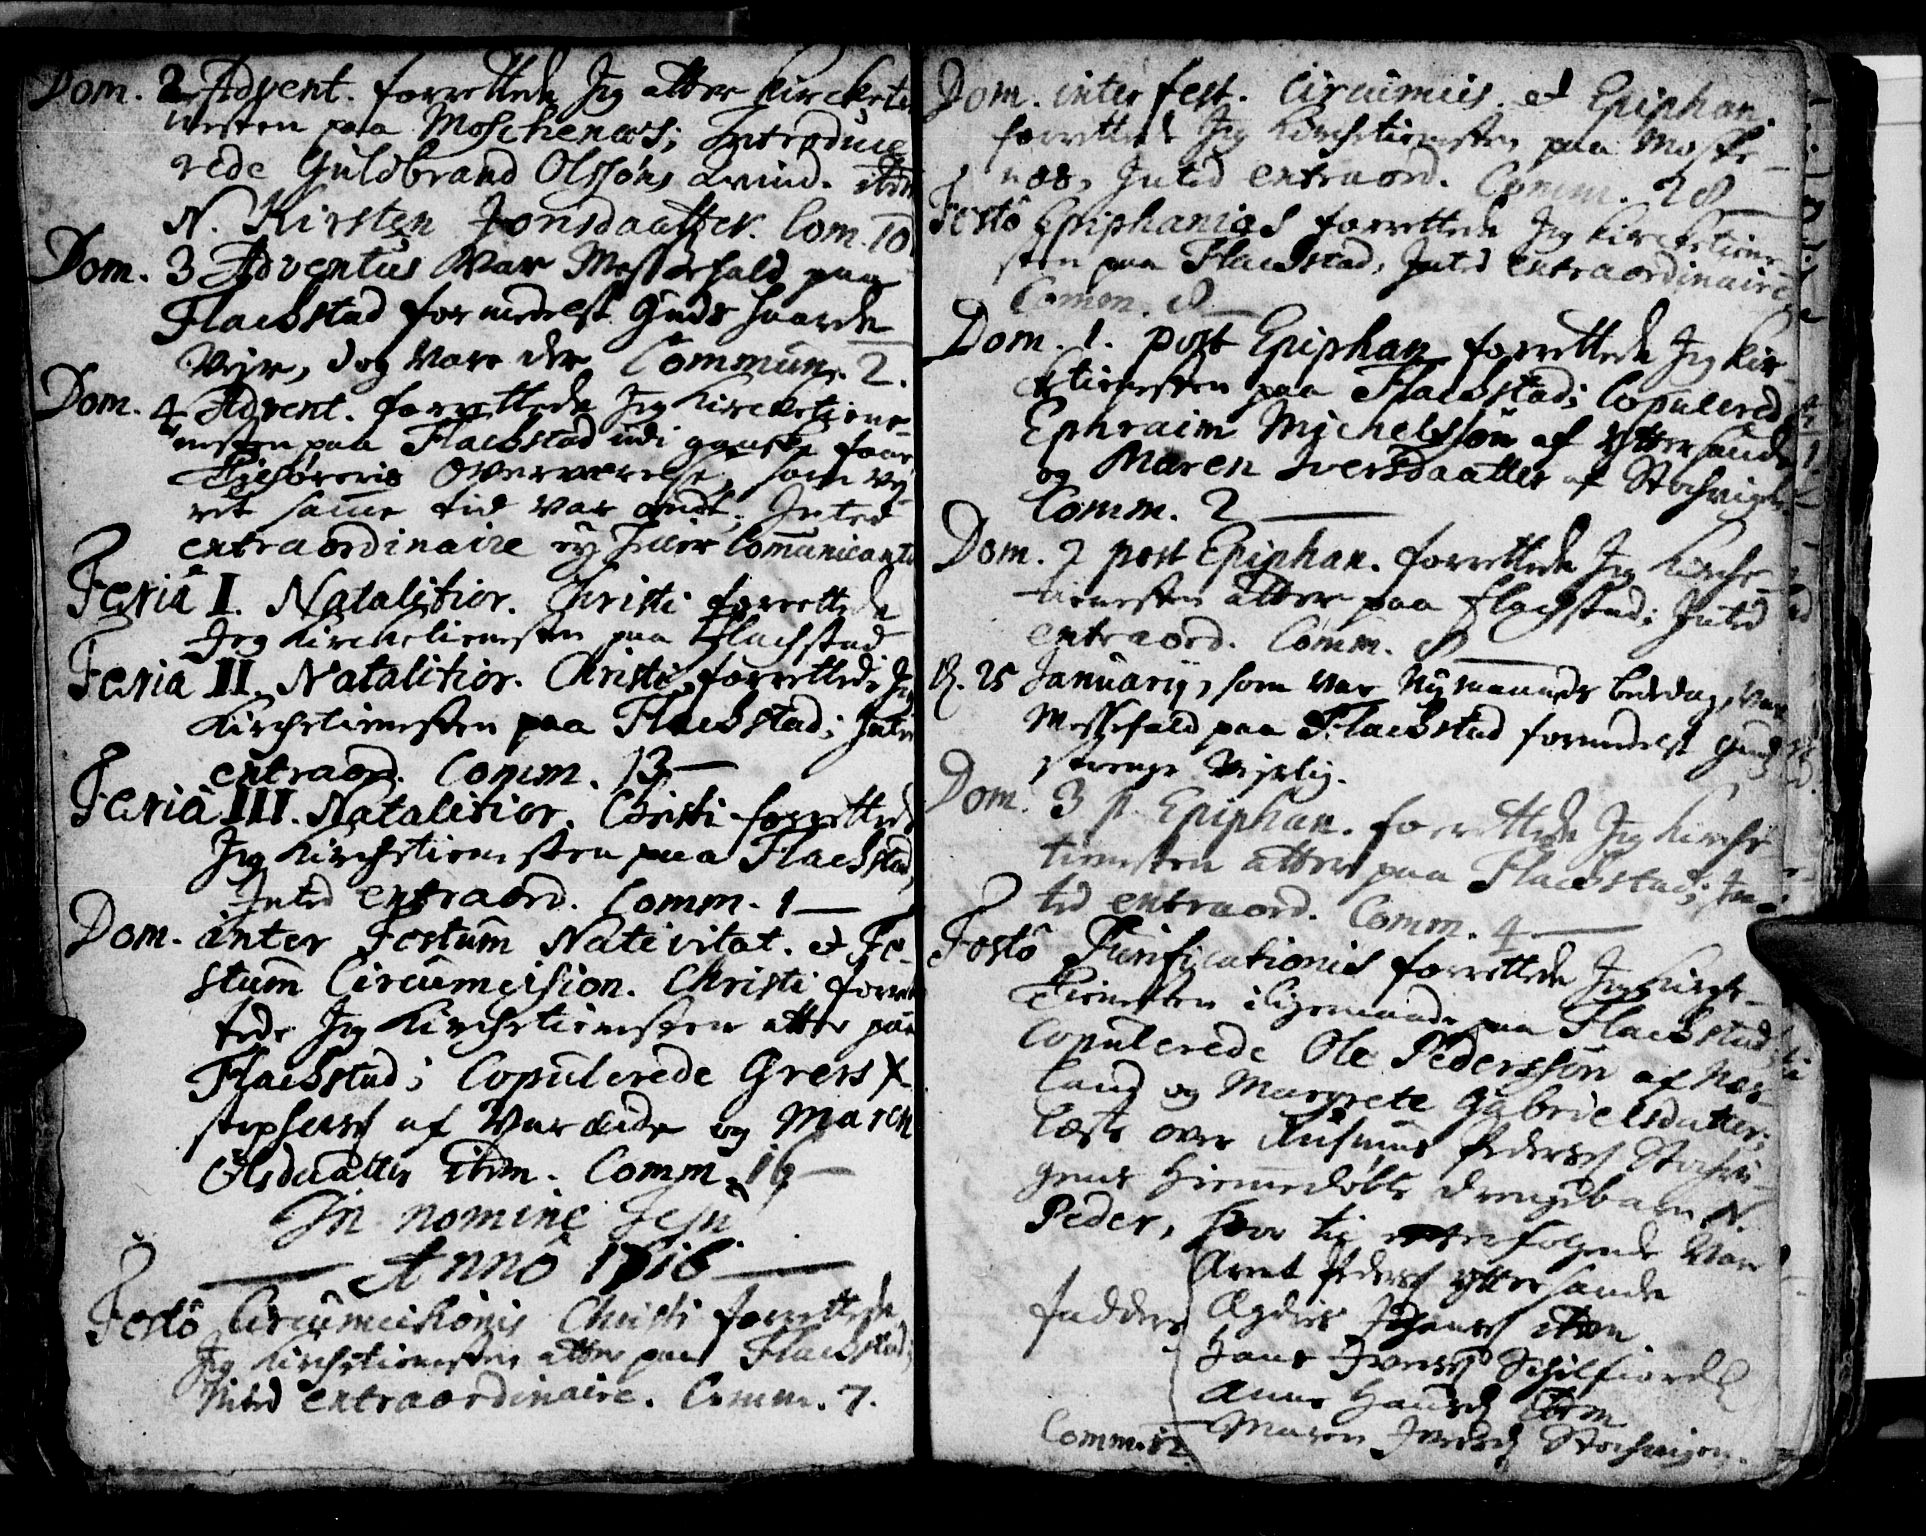 Dom. 2 Advent. forrettede Jeg atter Kircketie
nesten paa Moschenæs; Introduce
rede Guldbrand Olssøns qvind. ibdm
N. Kirsten Jonsdaatter. Com. 10
Dom. 3 Adventus Var Messefald paa
Flackstad formedelst Guds haarde
Vejr, dog Vare der Commun. 2.
Dom. 4 Advent. forrettede Jeg Kircketiene-
nesten paa Flackstad udi ganske faae
Tilhøreris Overværelse, som vej
ret samme tid var ondt; Inted
extraordinaire ej heller Communicante
Feria I. Natalitior. Christi forrettede
Jeg Kirchetienesten paa Flachstad
Feria II. Natalitior. Christi, forrettede Jeg
Kirchetienesten paa Flackstad; Inted
extraord. Comm. 13
Feria III. Natalitior. Christi forrettede
Jeg Kirchetienesten paa Flackstad,
Inted extraord. Comm. 1
Dom. inter Festum Nativitat. et Fe-
stum Circumcision. Christi forret
tede Jeg Kirchetienesten atter paa
Flackstad; Copulerede Grers X
stophers af Var og Maren
Olsdaatter ibdm. Comm. 16
In nomine Jesu
Anno 1716
Festo Circumcisionis Christi forrettede
Jeg Kirchetienesten atter paa Flackstad;
Inted extraordinaire. Comm. 7.
Dom. inter fest. Circumcis. et Epiphan.
forrettede Jeg Kirchetienesten paa Moske-
næs, Inted extraord. Comm. 28
Festo Epiphanias forrettede Jeg Kircketiene-
sten paa Flackstad, Inted extraordinaire
Comm. 8
Dom. 1. post Epiphan forrettede Jeg Kir-
ketienesten paa Flackstad; Copulerede
Ephraim Michelssøn af Yttersande
og Maren Iversdaatter af Stochvigen
Comm. 2
Dom. 2 post Epiphan. forrettede Jeg Kirche-
tienesten atter paa Flachstad; Inted
extraord. Comm. 8
D. 25 Januarij, som var Nymaaneds bededag, Var
Messefald paa Flackstad formedelst Guds
strenge Vejrlig.
Dom. 3 p. Epiphan. forrettede Jeg Kirche
tienesten atter paa Flackstad; In-
ted extraord. Comm. 4
Festo Purificationis forrettede Jeg Kirche-
tienesten ligemaade paa Flackstad;
Copulerede Ole Pederssøn af Nas-
land og Margrete Gabrielsdatter;
læste over Rasmus Peders Stochvi-
gens hiemmedøbte drengebarn N.
Peder, hvor til efterfølgende Var
Arent Peders Yttersande
faddere Johans ibdm
Hans Ivers Schilfiord
Anne Hansd ibdm
Comm. 12 Maren Iversd Stochvigen.